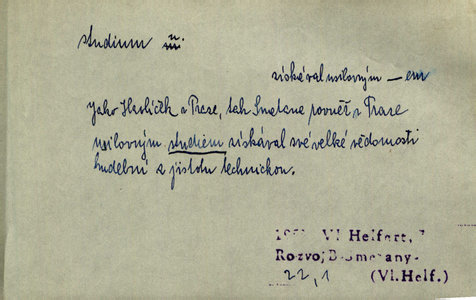 studium n.
získával usilovným — em
Jako Havlíček v Praze, tak Smetana rovněž v Praze
usilovným studiem získával své velké vědomosti
hudební a jistotu technickou.
Vl Helfert,
Rozvoj B Smetany
22, 1 (Vl. Helf.)